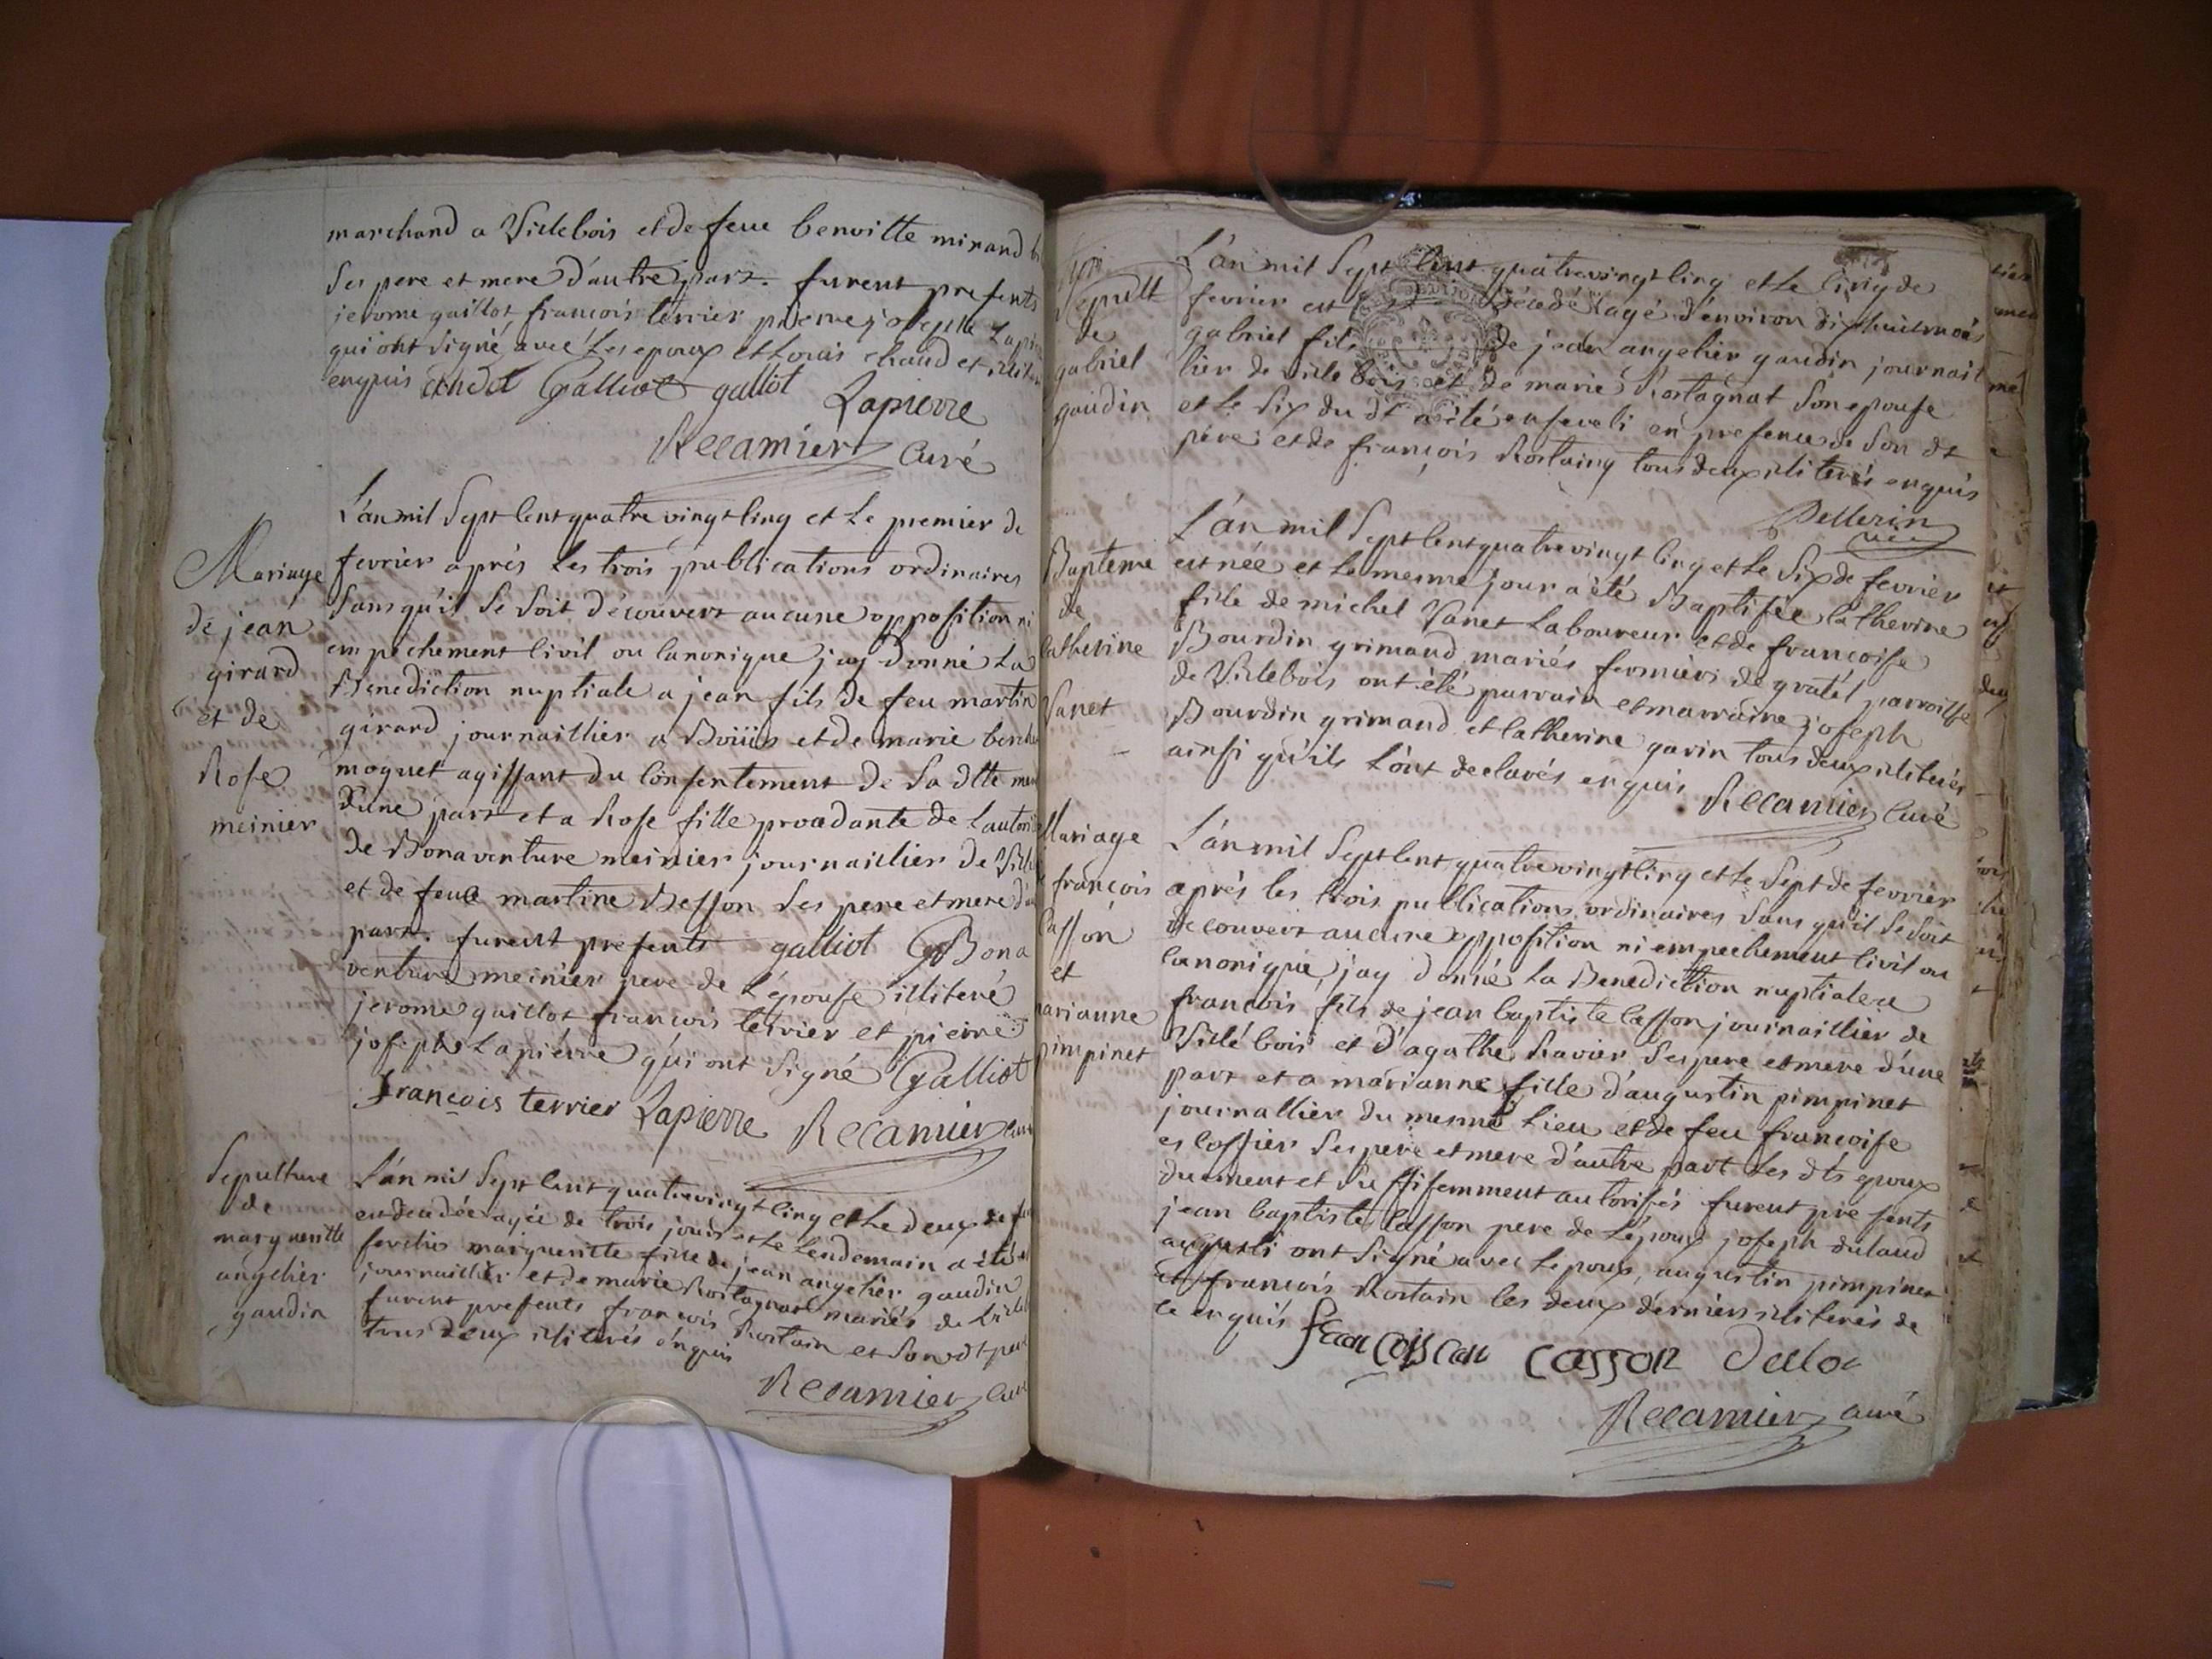 marchand a Villebois et de feue benoitte mirand
ses pere et mere d'autre part. furent presents
jerome guillot françois terrier pierre joseph Lapierre
qui ont signé avec les epoux et Louis chaud
enquis Galliot galliot Lapierre
Recamier Curé
Mariage
de jean
girard
et de
Rose
meinier
L'an mil sept cent quatre vingt cinq et le premier de
fevrier après les trois publications ordinaires
sans qu'il se soit découvert aucune opposition ni
empechement civil ou canonique j'ay donné la
Benediction nuptiale a jean fils de feu martin
girard journaillier a Boüis et de marie
moquet agissant du consentement de sa dtte
d'une part et a Rose fille proadante de L'autori
de Bonaventure meinier journaillier de Ville
et de feue martine Besson ses pere et mere d'
part. furent presents galliot Bona
venture meinier pere de l'epouse illiteré
jerome guillot françois terrier et pierre
joseph Lapierre qui ont signé Galliot
françois terrier Lapierre Recamier Curé
Sepulture
de
marguerite
angelier
gaudin
L'an mil sept cent quatrevingt cinq et le deux de
est decedée agée de trois jours et le lendemain a été
sevelie marguerite fille de jean angelier gaudin
journaillier et de marie Rostagnat mariés de Ville
furent presents françois Rostain et son dt pere
tous deux illiterés enquis
Recamier Curé
sepult
de
gabriel
gaudin
L'an mil sept cent quatrevingt cinq et le cinq de
fevrier est décedé agé d'environ dix huit mois
gabriel fils de jean angelier gaudin journail
lier de villebois et de marie Rostagnat son epouse
et le six du dt a été enseveli en presence de son dt
père et de françois Rostaing tous deux illiterés enquis
Pellerin
Bapteme
de
Catherine
Vanet
L'an mil sept cent quatre vingt cinq et le six de fevrier
est née et le meme jour a été Baptisée Catherine
fille de michel Vanet laboureur et de françoise
Bourdin grimaud mariés fermiers de parroisse
de Villebois ont été parrain et marraine joseph
Bourdin grimaud et Catherine garin tous deux illiterés
ainsi qu'ils l'ont declarés enquis
Recamier Curé
Mariage
françois
Casson
et
marianne
pimpinet
L'an mil sept cent quatrevingt cinq et le sept de fevrier
après les trois publications ordinaires sans qu'il se soit
decouvert aucune opposition ni empechement civil ou
canonique, j'ay donné la Benediction nuptiale a
francois fils de jean baptiste Casson journaillier de
Villebois et d'agathe Ravier ses pere et mere d'une
part et a marianne fille d'augustin pimpinet
journallier du meme lieu et de feu françoise
escoffier ses pere et mere d'autre part les dts epoux
duement et suffisemment autorisés furent presents
jean baptiste Casson pere de l'epoux joseph dulaud
ont signé avec l'epoux, augustin pimpinet
et françois Rostain les deux derniers illiterés de
ce enquis françois cason casson
Recamier curé